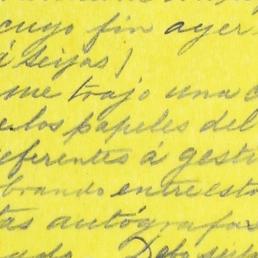 cuyo fin ayer
me trajo una c
los papeles del
eferentes á gesti
brando entre esto
tas autógrafos